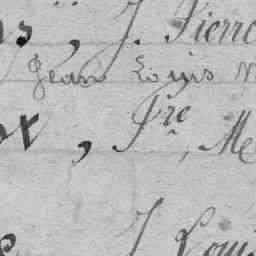 , J. Pierre
Jean Louis
, Jre, Me
J. Loui